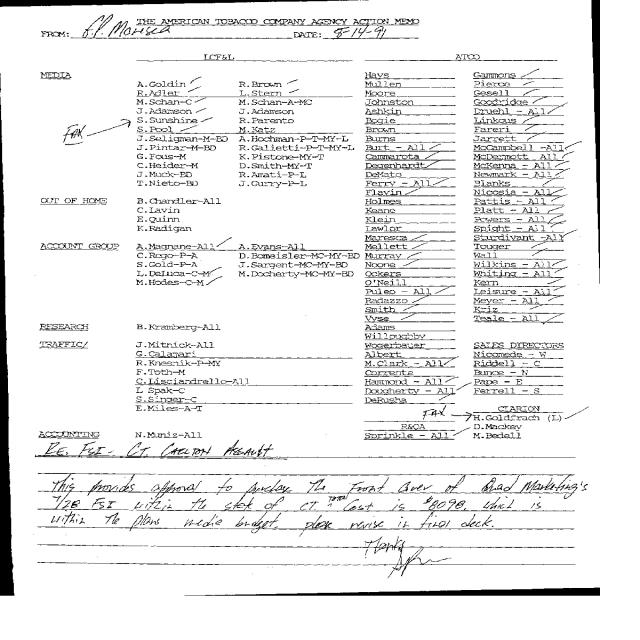 THE AMERICAN TOBACCO COMPANY AGENCY ACTION MEMO
FROM: DATE: 8-14-91
LCF&L ATCO
MEDIA Hays Gammons
A.Goldin R.Brown Mullen Pierce
R.Adler L.Stern Moore Gesell
M.Schan-C M.Schan-A-MC Johnston Goodridge
J.Adamson J.Adamson Ashkin Druehl - All
S.Sunshine R.Parento Bogie Linkous
FAX S.Pool M.Katz Brown Fareri
J.Seligman-M-BD A.Hochman-P-T-MY-L Burns Jarrett
J.Pintar-M-BD R.Galietti-P-T-MY-L Burt - All McCampbell -All
G.Fous-M K.Pistone-MY-T Cammarota McDermott -All
C.Heider-M D.Smith-MY-T Degenhardt McKenna - All
J.Muck-BD R.Amati-P-L DeMato Newmark - All
T.Nieto-BD J.Curry-P-L Ferry - All Blanks
Flavin Nicosia - All
OUT OF HOME B.Chandler-All Holmes Pattis - All
C.Lavin Keane Platt - All
E.Quinn Klein Powers - All
K.Radigan Lawlor Spight - All
Maresca Sturdivant -All
ACCOUNT GROUP A.Magnane-All A.Evans-All Mellett Touger
C.Rogo-P-A D.Bomeisler-MC-MY-BD Murray Wall
S.Gold-P-A J.Sargent-MC-MY-BD Noone Wilkins - All
L.DeLuca-C-M M.Docherty-MC-MY-BD Ockers Whiting - All
M.Hodes-C-M O'Neill Kern
Puleo - All Leisure - All
Radazzo Meyer - All
Smith Kriz
Vyse Teale - All
RESEARCH B.Kramberg-All Adams
Willoughby
TRAFFIC/ J.Mitnick-All Wogerbauer SALES DIRECTORS
G.Calamari Albert Nicomede - W
R.Knesnik-P-MY M.Clark - All Riddell - C
F.Toth-M Corrents Bunce - N
C.Lisciandrello-All Hammond - All Pape - E
L Spak-C Dougherty - All Ferrell - S
S.Singer-C DeRusha
E.Miles-A-T CLARION
FAX H.Goldfrach (L)
R&QA D.Mackey
ACCOUNTING N.Muniz-All Sprinkle - All M.Bedell
RE. FSI - CT. CARLTON ASSAULT
This provides approval to purchase the Front Cover of Quad Marketing's
7/28 FSI within the state of CT TOTAL Cost is $8098, which is
within the plans media budget, please revise in final deck.
Thanks